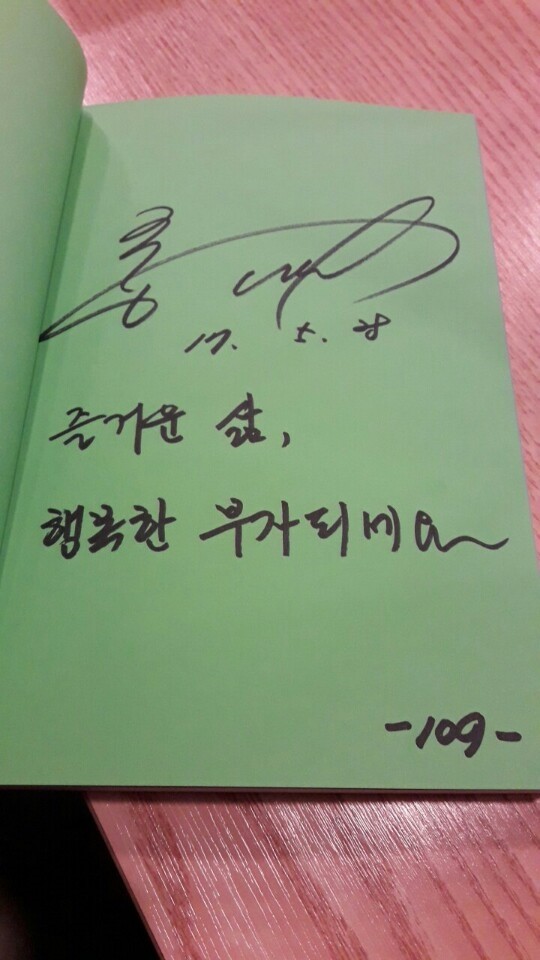 17. 5. 28
즐거운 삶,
행복한 부자되세요
-109-